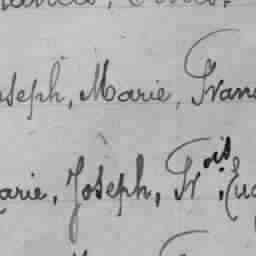 oseph, Marie, Fran
arie, Joseph, Fr ois, Eu